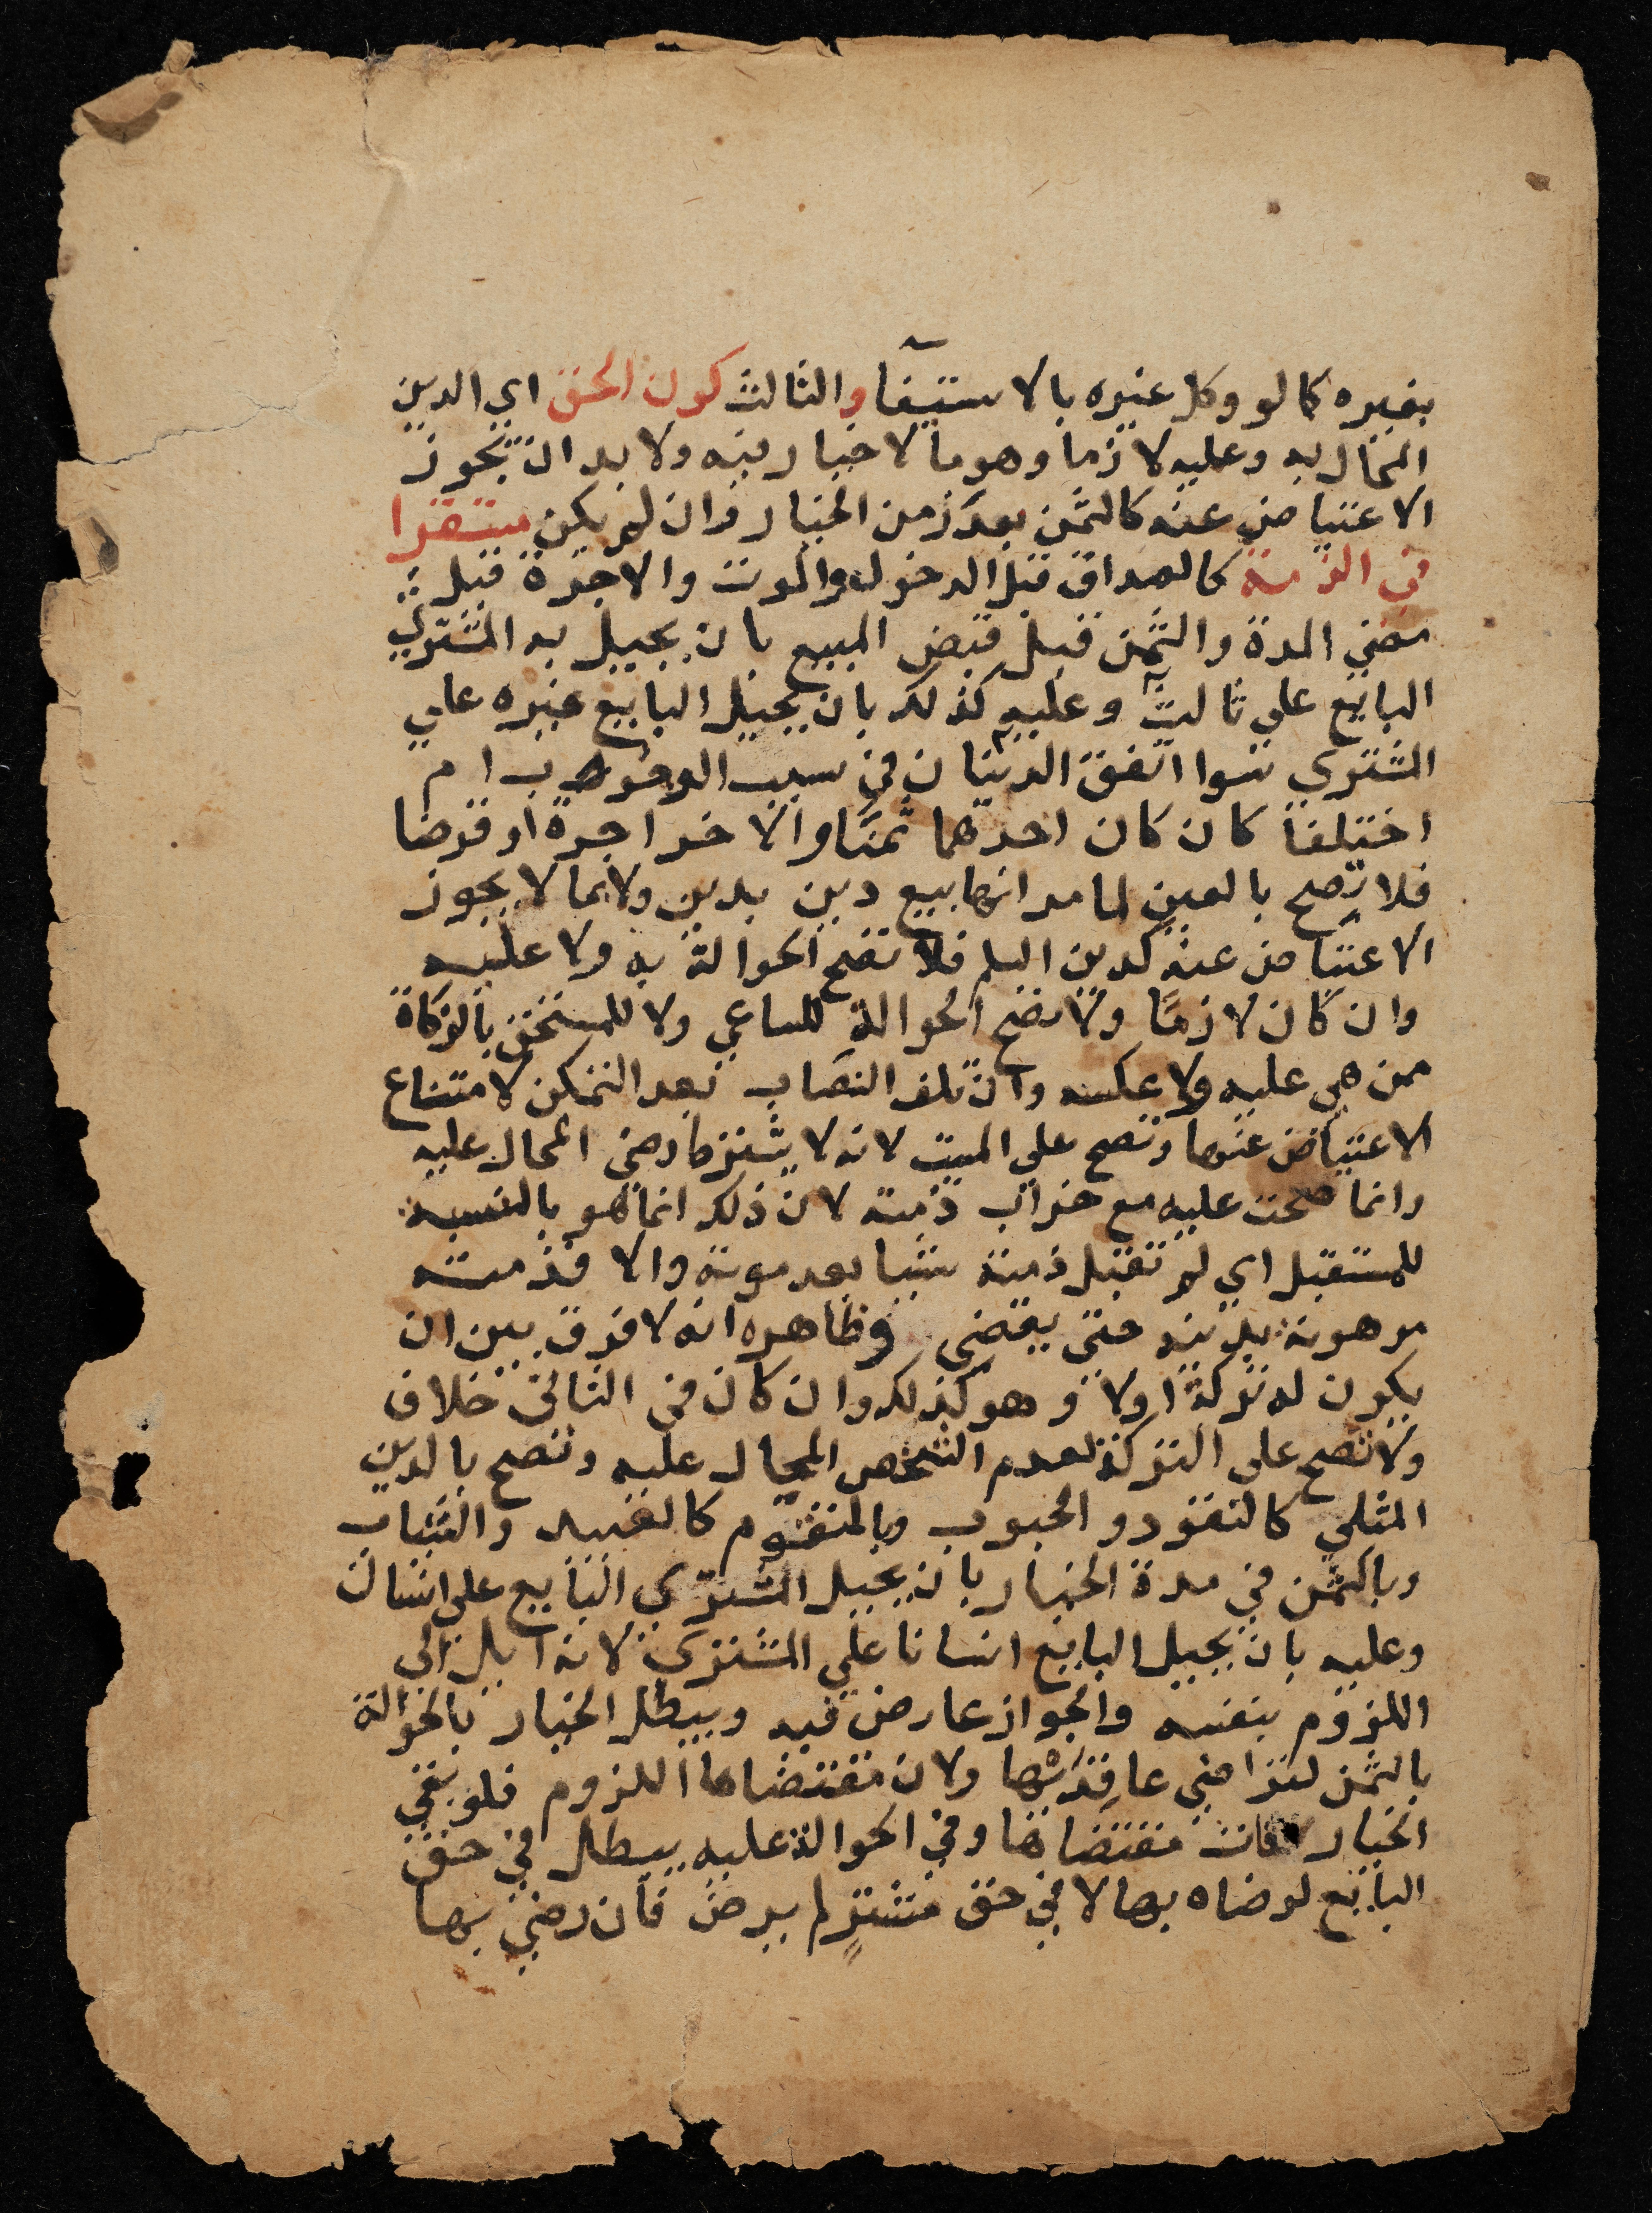 بغيره كما لو وكل غيره بالاستيفآ والثالث كون الحق اي الدين
المحال به وعليه لازما وهو ما لا خيار فيه ولا بد ان يجوز
الاعتياض عنه كالثمن بعد زمن الخيار وان لم يكن مستقرا
في الذمة كالصداق قبل الدخول والموت والاجرة قبل
مضي المدة والثمن قبل قبض المبيع بان يحيل به المشتري
البايع على ثالث وعليه كذلك بان يحيل البايع غيره علي
المشتري سوا اتفق الدينان في سبب الوجوب ام
اختلفا كان كان احدهما ثمنا والاخر اجرة او قرضا
فلا تصح بالعين لما مر انها بيع دين بدين ولا بما لا يجوز
الاعتياض عنه كدين السلم فلا تصح الحوالة به ولا عليه
وان كان لازما ولا تصح الحوالة للساعي ولا للمستحق بالزكاة
ممن هي عليه ولا عكسه وان تلف النصاب بعد التمكن لامتناع
الاعتياض عنها وتصح علي الميت لانه لا يشترط رضي المحال عليه
وانما صحت عليه مع خراب ذمته لان ذلك انما هو بالنسبة
للمستقبل اي لم تقبل ذمته شيا بعد موته والا فذمته
مرهونة بدينه حتى يقضي وظاهره انه لا فرق بين ان
يكون له تركة اولا وهو كذلك وان كان في الثاني خلاف
ولا تصح على التركة لعدم الشخص المحال عليه وتصح بالدين
المثلي كالنقود والحبوب وبالمتقوم كالعبيد والثياب
وبالثمن في مدة الخيار بان يحيل المشتري البايع على انسان
وعليه بان يحيل البايع انسانا علي المشتري لانه ايل الي
اللزوم بنفسه والجواز عارض فيه ويبطل الخيار بالحوالة
بالثمن لتراضي عاقديها ولان مقتضاها اللزوم فلو بقي
الخيار فات مقتضاها وفي الحوالة عليه يبطل في حق
البايع لرضاه بها لا في حق مشتر لم يرض فان رضي بها